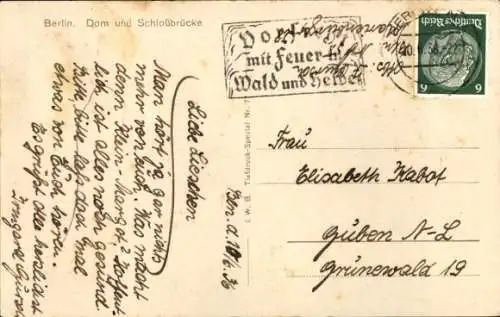 Berlin. Dom und Schloßbrücke
Vorsicht
mit Feuer in
Wald und Heide!
Deutsches Reich
6 6
Bln. d. 10./6. 36
Liebe Lieschen
Man hört ja gar nichts
mehr von Euch. Was macht
denn Klein-Margot? Hoffent-
lich ist alles noch gesund.
Bitte, bitte laß doch mal
etwas von Euch hören.
Es grüßt Alle herzlichst
Irmgard
Frau
Elisabeth Kabot
Guben N-L
Grünewald 19
I. W. B. Tiefdruck-Spezial Nr. 7